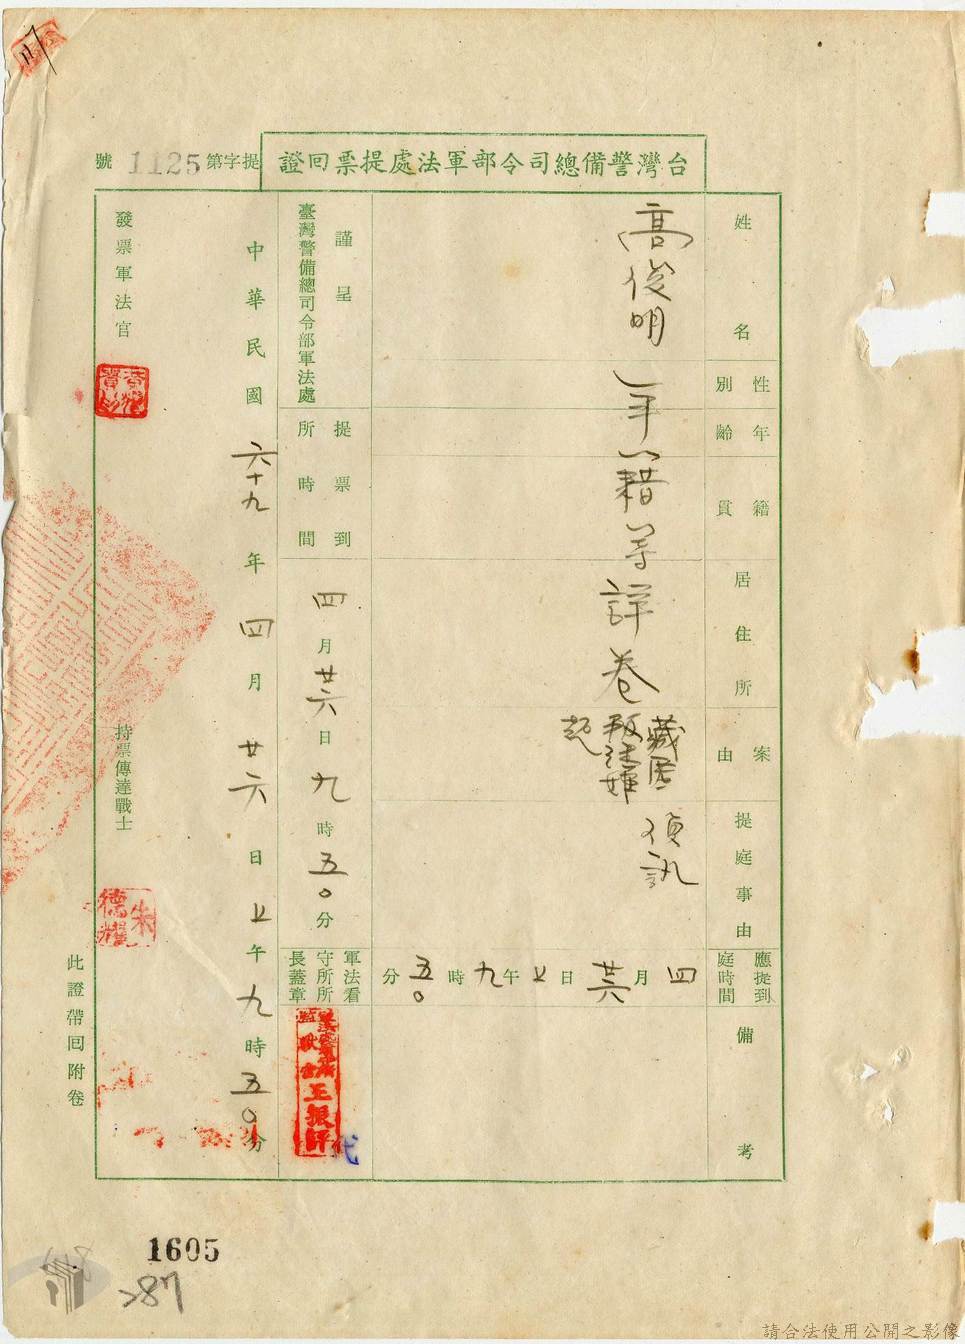 台灣警備總司令部軍法處提票回證
提字第1125號
姓名
高俊明
性別
年齡
年
籍貫
籍等
居住所
詳卷
案由
藏匿
叛徒
提庭事由
偵訊
應提到庭時間
四月廿六日上午九時五〇分
備考
謹呈
臺灣警備總司令部軍法處
提票到所時間
四月廿六日九時五〇分
軍法看守所所長蓋章
王振
代
中華民國六十九年四月廿六日上午九時五〇分
發票軍法官
持票傳達戰士
朱德耀
此證帶回附卷
1605
287
請合法使用公開之影像